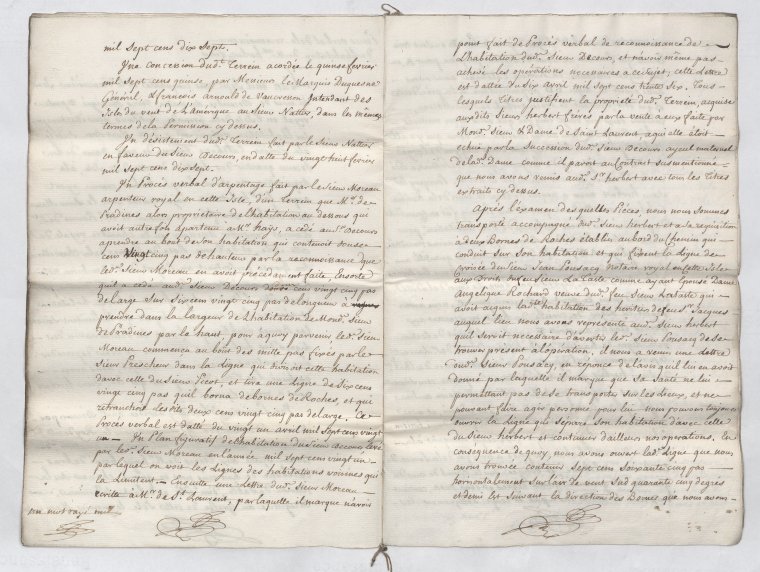 mil sept cens dix sept.
Une concession dud.t Terrein acordée le quinse fevrier
mil sept cens quinse, par Messieurs le Marquis Duquesne
Général, & francois arnould de Vaucresson Intendant des
Isles du vent de l'amérique au Sieur Nattier, dans les mêmes
termes de la Permission cy dessus.
Un désistement dud.t Terrein fait par le Sieur Nattier
en faveur du Sieur Decours, en datte du vingt huit fevrier
mil sept cens dix sept.
Un Procès verbal d'arpentage fait par le Sieur Moreau
arpenteur royal en cette Isle, d'un Terrein que M.r de
Pradines alors proprietaire de l'habitation au dessous qui
avoit autrefois apartenu a M.r hays, a cédé au S.r decours
a prendre au bout de son habitation qui contenoit douse
cens Vingt cinq pas de hauteur par la reconnoissance que
led.t Sieur Moreau, en avoit précédament faite, Ensorte
qu'il a cédé aud.t Sieur Decours deux cens vingt cinq pas
de large sur Six cens vingt cinq pas de longueur à
prendre dans la largeur de l'habitation de Mond.t Sieur
de Pradines par le haut, pour a quoy parvenir, led.t Sieur
Moreau commenca au bout des mille pas fixés par le
Sieur Prescheur dans la Ligne qui divisoit cette habitation
davec celle du Sieur Ticot, et tira une Ligne de Six cens
vingt cinq pas qu'il borna de bornes de Roches, et qui
retranchoit lesdits deux cens vingt cinq pas de large. Ce
Procès verbal est datté du vingt un avril mil sept cens vingt
un — Un Plan figuratif de l'habitation du Sieur Decours levé
par led.t Sieur Moreau en l'année mil Sept cens vingt un
par lequel on voit les Lignes des habitations voisines qui
la Limitent. — Ensuitte une Lettre dud.t Sieur Moreau
ecritte à M.r de S.t Laurent, par laquelle il marque n'avoir
un mot rayé nul
point fait de Procès verbal de reconnoissance de
L'habitation dud.t Sieur Decours, et n'avoir même pas
achevé les opérations necessaires a ce sujet; cette Lettre
est dattée du Six avril mil sept cens trente Six. Tous
lesquels titres justifient la propriété dud.t Terrein, acquise
auxdits Sieurs herbert freres par la vente à eux faite par
Mond.t Sieur & Dame de Saint Laurent, a qui elle étoit
echüe par la Succession dud.t Sieur Decours ayeul maternel
de lad.te Dame comme il paroit au Contrat susmentionné
que nous avons remis aud.t S.r herbert avec tous les Titres
extraits cy dessus.
Après l'examen desquelles Pièces, nous nous Sommes
transporté accompagné dud.t Sieur herbert et a sa requisition
à deux Bornes de Roches établies au bord du Chemin qui
conduit sur son habitation et qui fixent la Ligne de
Croisée du Sieur Jean Poussacq Notaire royal en cette Isle
aux Droits du feu Sieur La Carte comme ayant épousé Dame
Angelique Rochard veuve dud.t feu Sieur Lacarte qui
avoit acquis lad.te habitation des heritiers de feu S.r Jacques
auquel lieu nous avons representé aud.t Sieur herbert
qu'il seroit necessaire d'avertir led.t Sieur Poussacq de se
trouver present a l'opération, il nous a remis une Lettre
dud.t Sieur Poussacq, en réponse de l'avis qu'il lui en avoit
donné par laquelle il marque que sa Santé ne lui
permettant pas de se transporter sur les Lieux, et ne
pouvant faire agir personne pour lui nous pouvons toujours
ouvrir la Ligne qui sépare son habitation davec celle
du Sieur herbert et continuer d'ailleurs nos opérations. En
consequence de quoy, nous avons ouvert lad.te Ligne que nous
avons trouvée contenir Sept cens Soixante cinq pas
horisontalement sur l'air de vent Sud quarante cinq degrés
et demi Est Suivant la direction des Bornes que nous avons